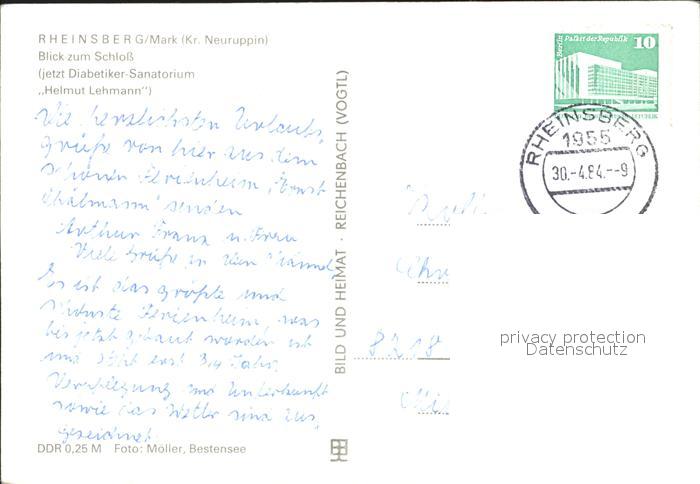 RHEINSBERG/Mark (Kr. Neuruppin)
Blick zum Schloß
(jetzt Diabetiker-Sanatorium
„Helmut Lehmann")
Die herzlichsten Urlaubs,
grüße von hier aus dem
schönen Ferienheim „Ernst
Thälmann" senden
Arthur Franz u. Frau
Viele Grüße an den
Es ist das größte und
schönste Ferienheim, was
bis jetzt gebaut worden ist
und steht erst 3/4 Jahr.
Verpflegung und Unterkunft
sowie das Wetter sind aus,
gezeichnet.
DDR 0,25 M Foto: Möller, Bestensee
BILD UND HEIMAT · REICHENBACH (VOGTL)
Berlin Palast der Republik
10
RHEINSBERG
1955
30.-4.84.--9
8218
privacy protection
Datenschutz